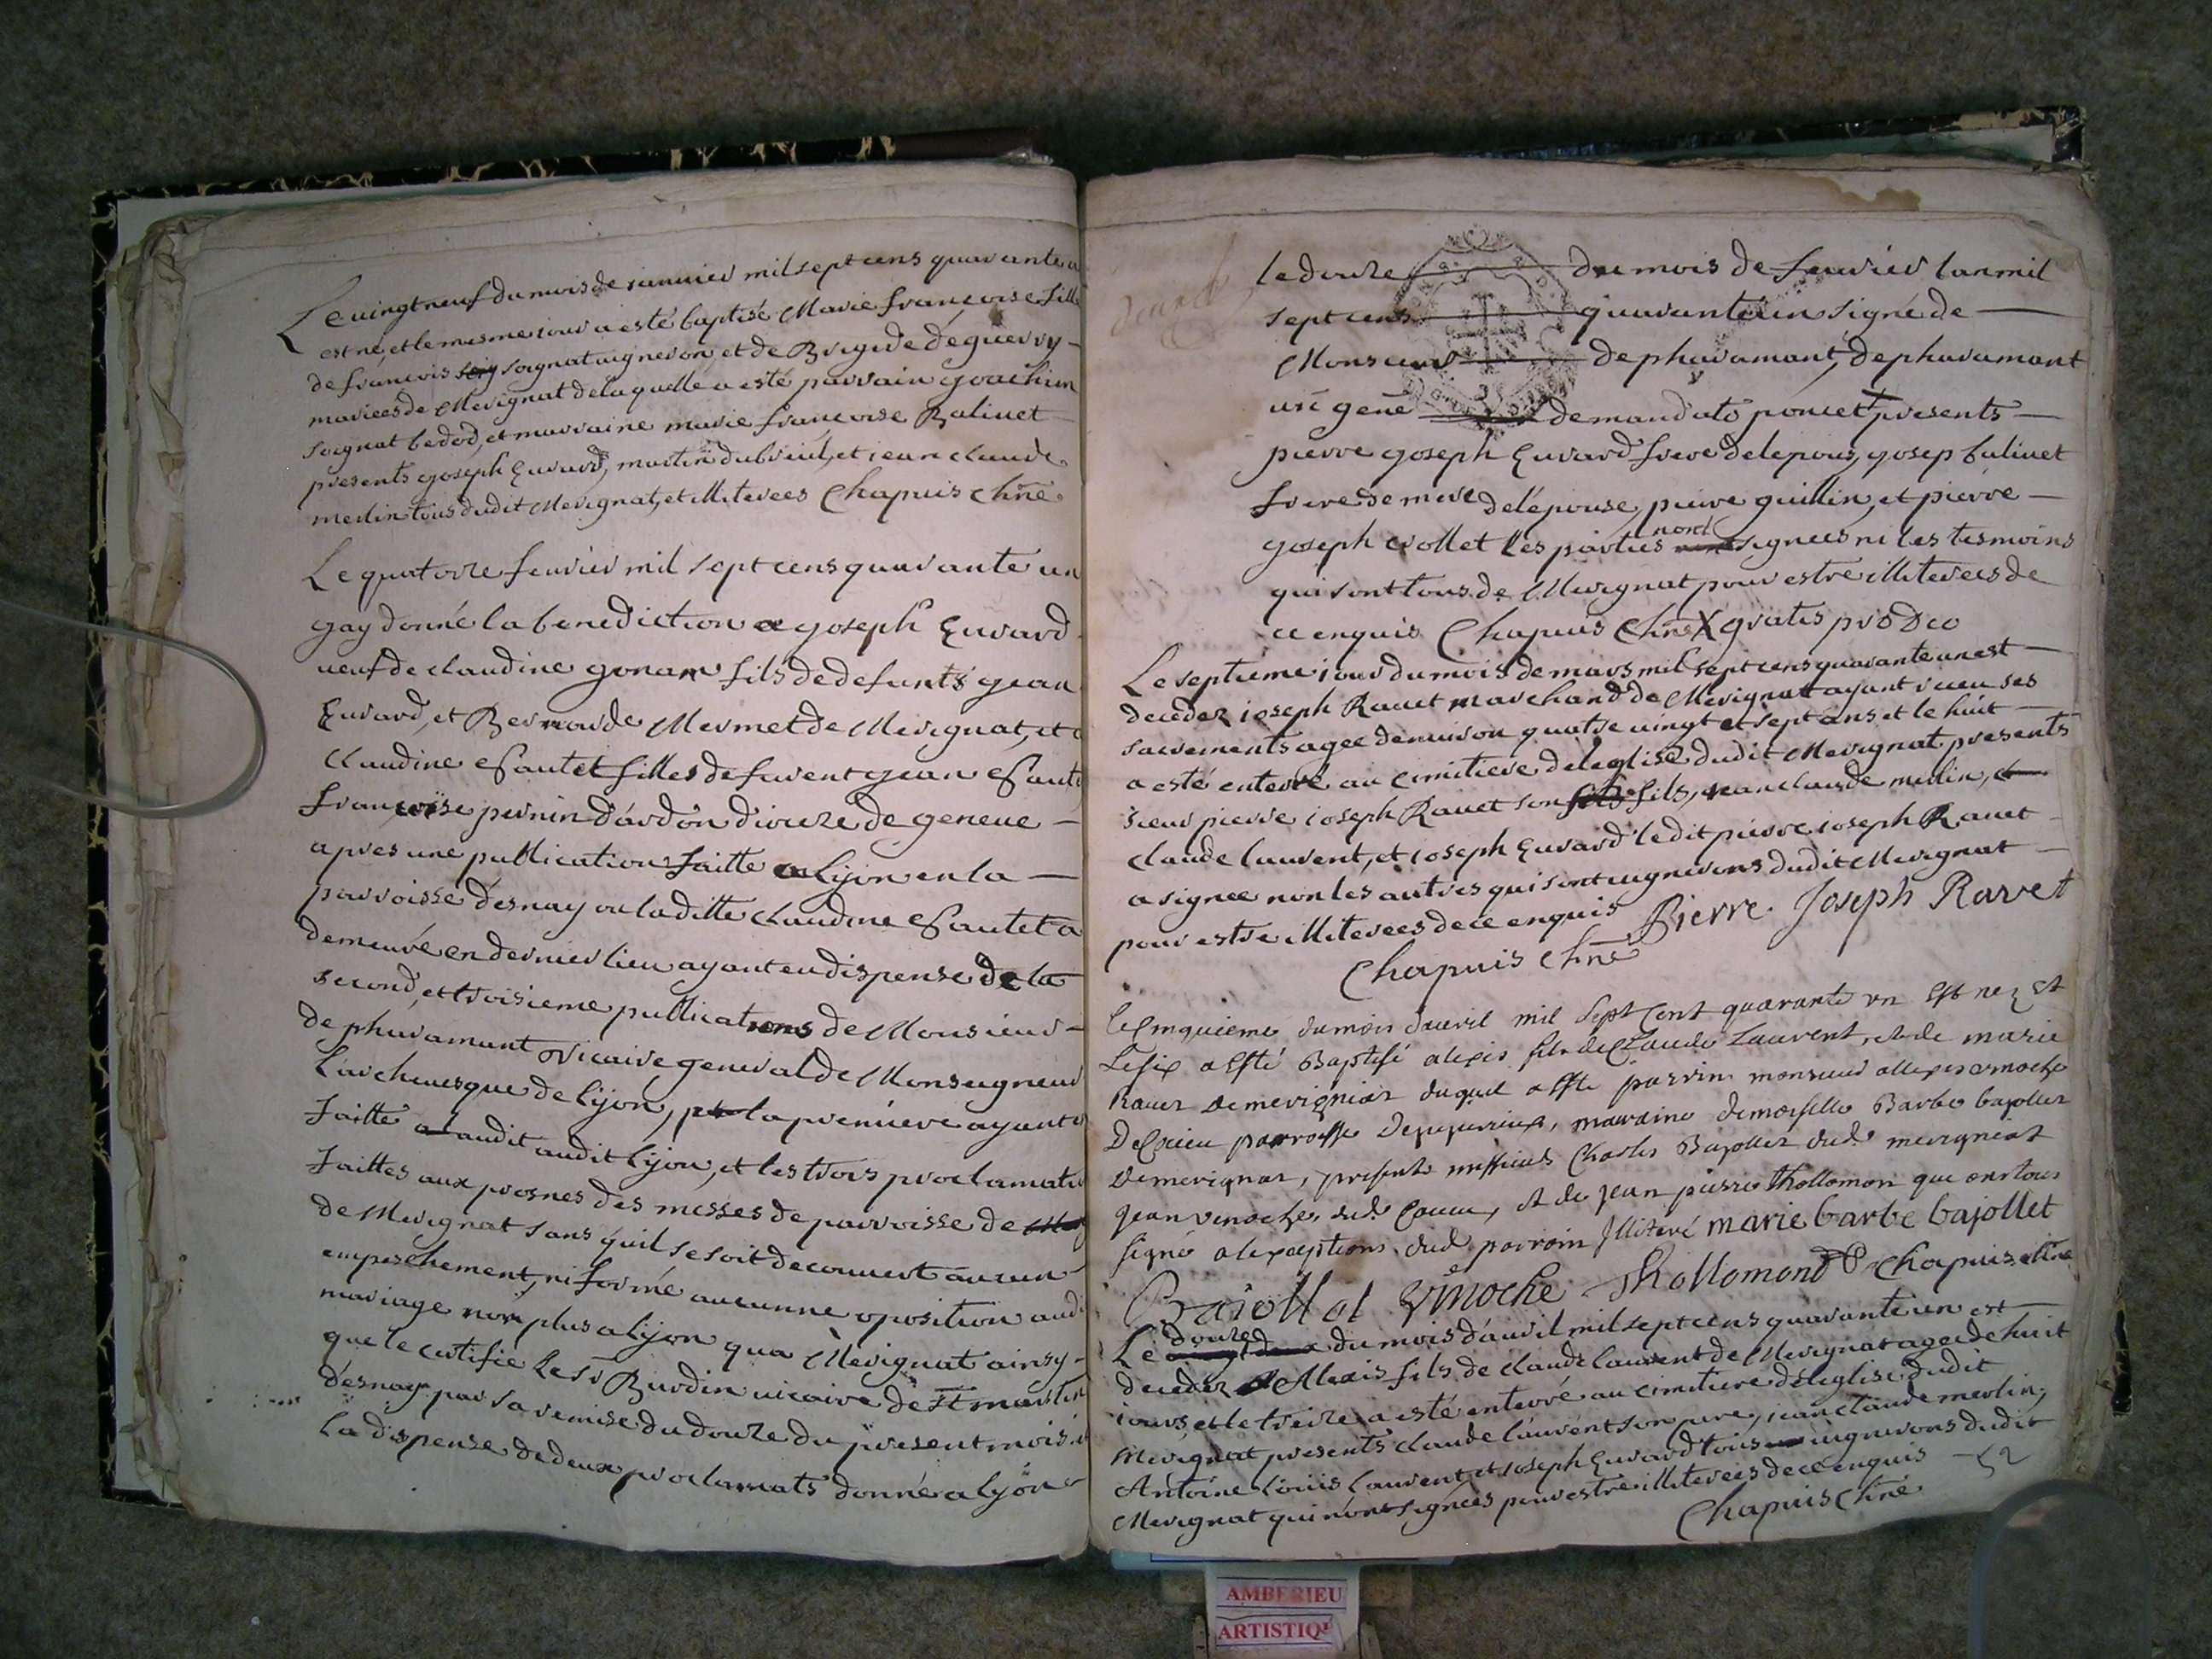 Le vingt neuf du mois de ianuier mil sept cens quarante u
est né, et le mesme iour a esté baptisé Marie françoise fille
de francois soignat uigneron, et de Brigide deguerry
mariees de Merignat de laquelle a esté parrain goachim
soignat bedod, et marraine marie françoise Baliuet
presents goseph Euvard, martin dubreül, et iean claude
merlin tous dudit Merignat, et illiterees Chapuis Chne
Le quatorze feurier mil sept cens quarante un
gay donné la benediction a goseph Euvard
ueuf de claudine gonam fils de defunts gean
Euvard, et Bernarde Mermet de Merignat, et
claudine filles de furent gean
françoise pernin d'ardon dioceze de geneue
apres une publication faitte a Lyon en la
parroisse desnay ou laditte claudine a
demeuré en dernier lieu ayant eu dispense de la
second, et troisieme publications de Monsieur
de pharamant vicaire general de Monseigneur
L'archeuesque de Lyon, la premiere ayant
faitte audit audit Lyon, et les trois proclamati
faittes aux prosnes des messes de parroisse de
de Merignat sans quil se soit decouuert aucun
empeschement, ni formé aucunne oposition audi
mariage non plus a Lyon qua Merignat ainsy
que le certifie le sr Burdin uicaire de St martin
desnay par sa remise du douze du present mois
La dispense de deux proclamats donné a Lyon
le douze du mois de feurier lan mil
sept cens quarante un signé de
Monsieur de pharamant, de pharamant
uic gene de mandato poncet presents
pierre goseph Euvard frere de lepoux, gosep baliuet
frere de mere de lépouse, pierre guillin, et pierre
goseph crollet les parties nont signees ni les tesmoins
qui sont tous de Merignat pour estre illiterees de
ce enquis Chapuis Chne X gratis pro Deo
Le septieme iour du mois de mars mil sept cens quarante un est
decedez ioseph Rauet marchand de Merignat ayant receu ses
sacrements agee denuiron quatre uingt et sept ans et le huit
a esté enterré au cimitiere de leglise dudit Merignat presents
sieur pierre ioseph Rauet son fils, iean claude merlin,
claude laurent, et ioseph Euvard ledit pierre ioseph Rauet
a signee non les autres qui sont uignerons dudit Merignat
pour estre illiterees de ce enquis Pierre Joseph Ravet
Chapuis Chne
le Cinquieme du mois dauril mil Sept Cent quarante un Est nez et
Le six a Esté Baptisé alexis fils de Claude Laurent, et de marie
rauet de merigniat duquel a Esté parrin monsieur
parroisse, marraine demoiselle Barbe bajollet
de merignat, presents messieurs Charles Bajollet dud. merigniat
Jean vinoche, dud., et de jean pierre thollomon que ont tous
signé a lexception dud. parroin Illiteré marie barbe bajollet
Baiollet vinoche Thollomond Chapuis Chne
Le douze du mois d'auril mil sept cens quarante un est
decedez Alexis fils de claude laurent de Merignat agee de huit
iours, et le treize a esté enterré au cimitiere de leglise dudit
Merignat presents claude laurent son pere, iean claude merlin,
Antoine Louis laurent et ioseph Euvard tous uignerons dudit
Merignat qui nont signees pour estre illiterees de ce enquis
Chapuis Chne
52
AMBERIEU
ARTISTIQ